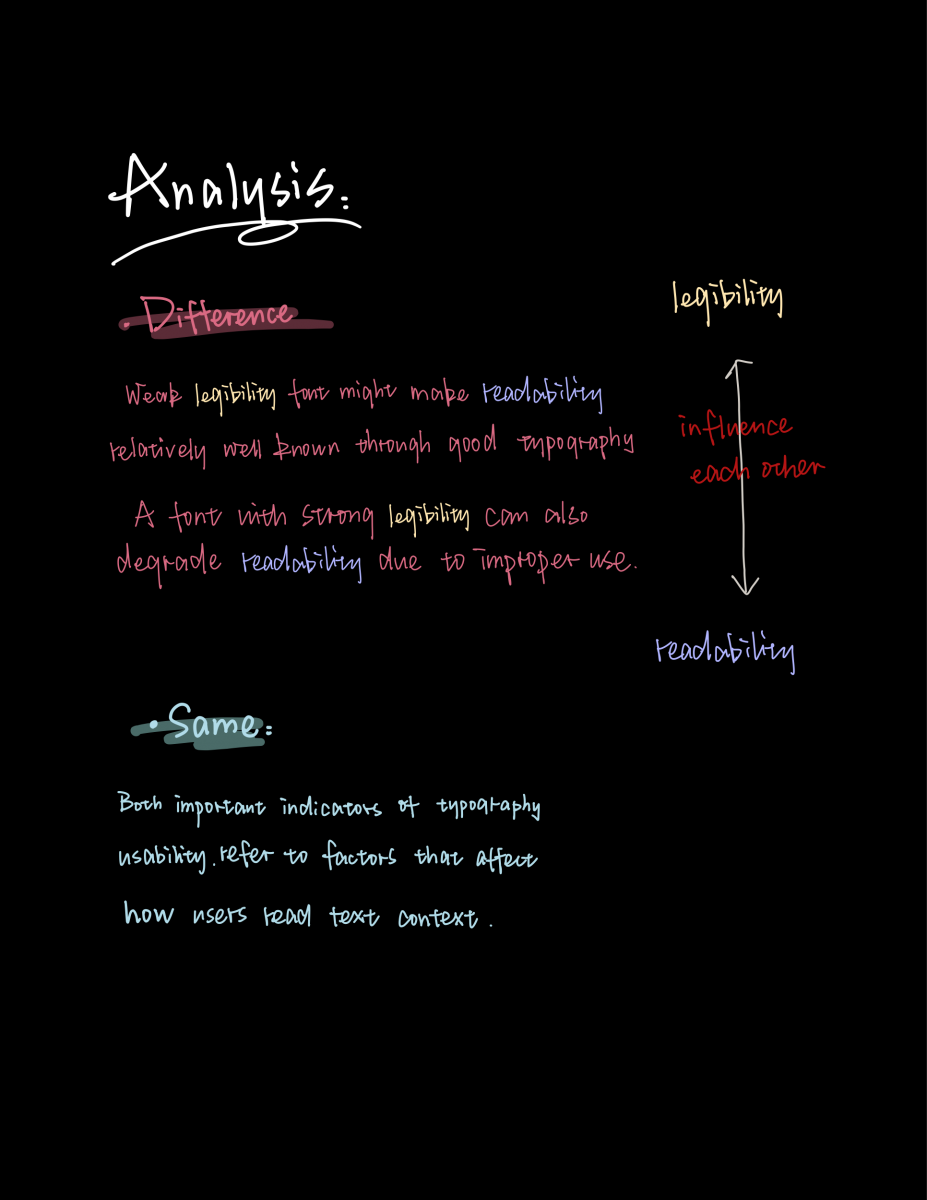 Analysis:
· Difference
Weak legibility font might make readability
relatively well known through good typography
A font with strong legibility can also
degrade readability due to improper use.
legibility
influence
each other
readability
· Same:
Both important indicators of typography
usability. refer to factors that affect
how users read text context.